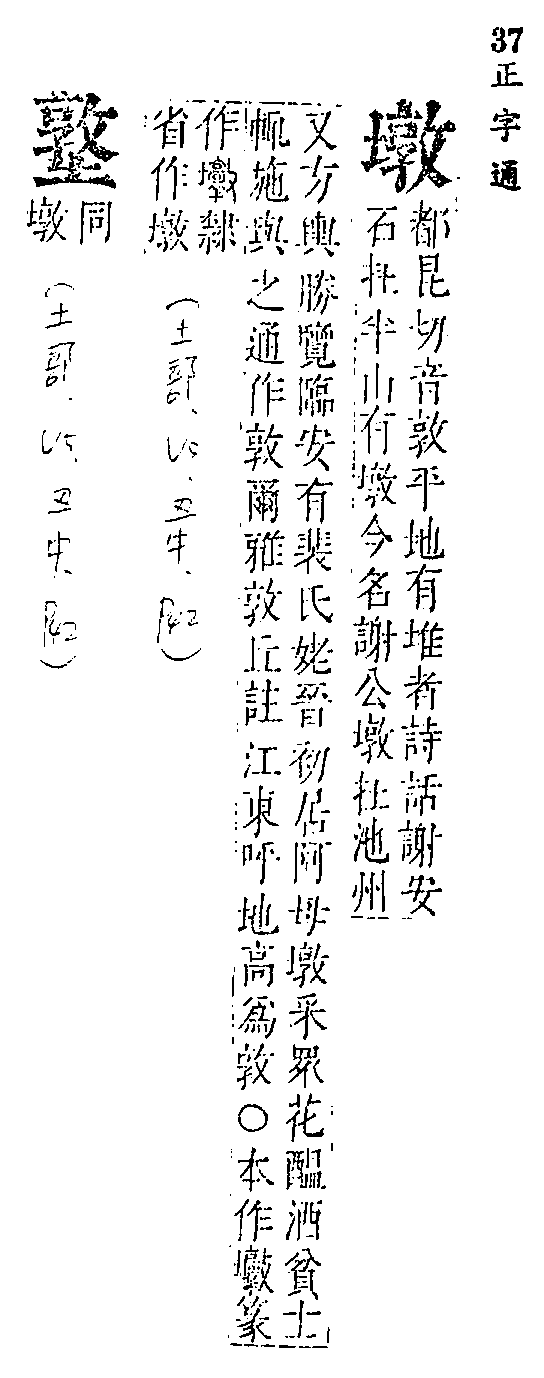 37正字通
墩
都昆切音敦平地有堆者詩話謝安
石在半山有墩今名謝公墩在池州
又方輿勝覽臨安有裴氏姥晉初居阿母墩采眾花醞酒貧士
輒施與之通作敦爾雅敦丘註江東呼地高爲敦〇本作篆
作隸
省作墩
(土部、丑
墪
同
墩
(土部、丑